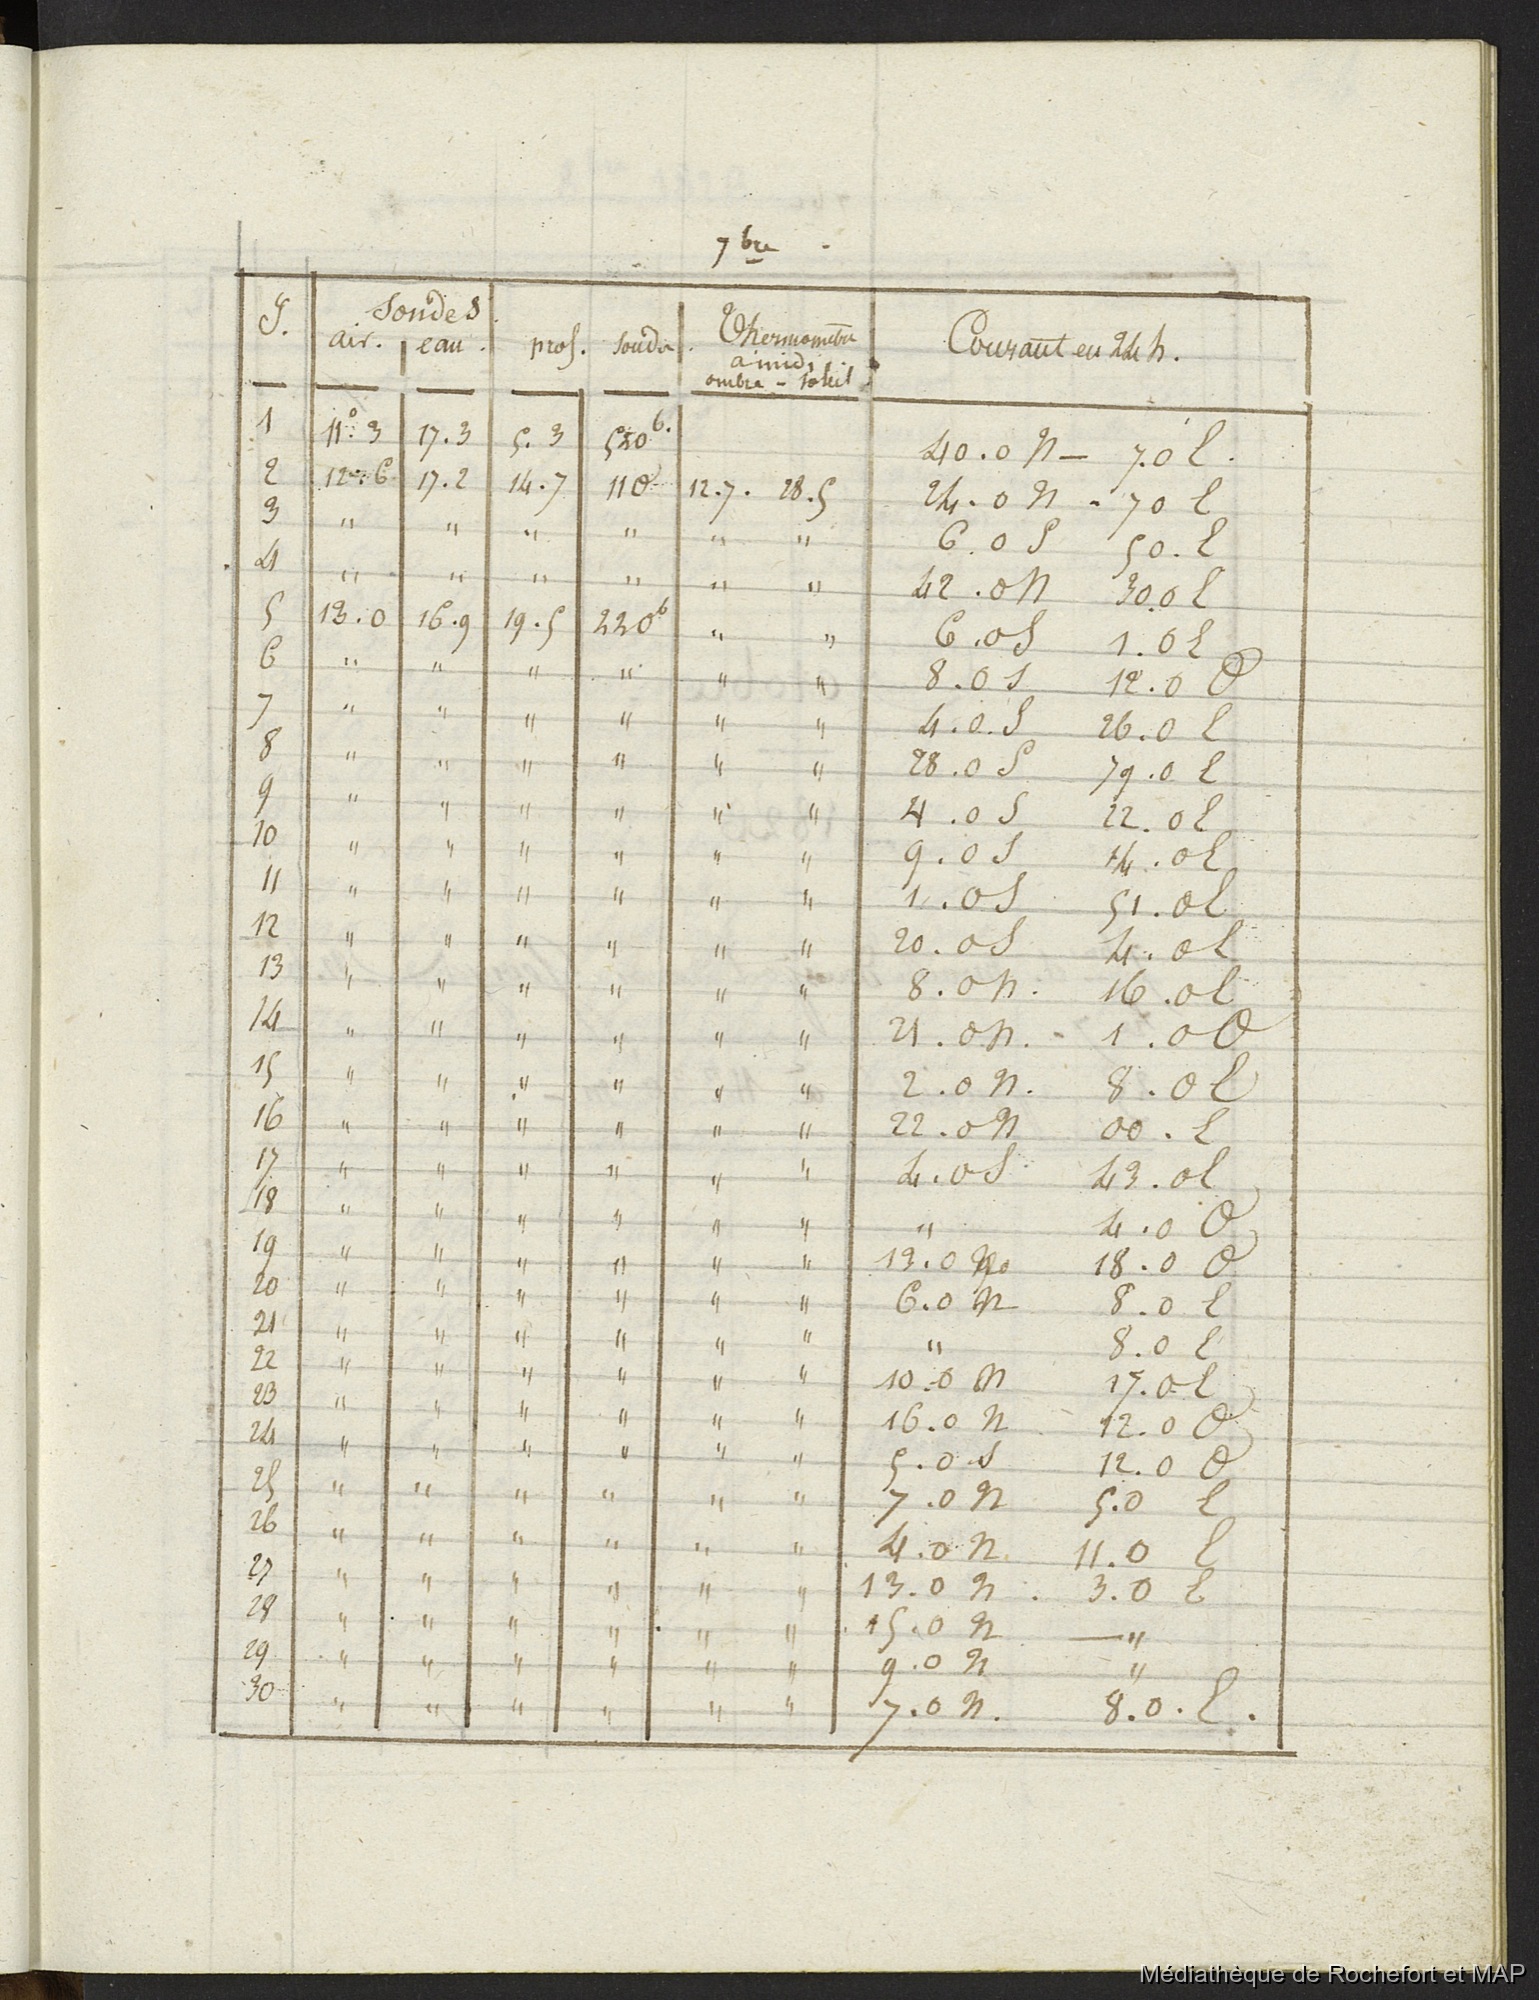 7bre
J. Sondes Thermomètre Courant en 24h.
air. eau. prof. sonde. à midi
ombre - soleil
1 11°.3 17.3 5.3 520b. 40.0 N — 7.0 E.
2 12.6 17.2 14.7 110 12.7. 28.5 24.0 N - 70 E
3 " " " " " " 6.0 S 50. E
4 " " " " " " 42.0 N 30.0 E
5 13.0 16.9 19.5 220b " " 6.0 S 1.0 E
6 " " " " " " 8.0 S 12.0 O
7 " " " " " " 4.0. S 26.0 E
8 " " " " " " 28.0 S 79.0 E
9 " " " " " " 4.0 S 22.0 E
10 " " " " " " 9.0 S 14.0 E
11 " " " " " " 1.0 S 51.0 E
12 " " " " " " 20.0 S 4.0 E
13 " " " " " " 8.0 N. 16.0 E
14 " " " " " " 21.0 N. - 1.0 O
15 " " " " " " 2.0 N. 8.0 E
16 " " " " " " 22.0 N 00. E
17 " " " " " " 4.0 S 43.0 E
18 " " " " " " " 4.0 O
19 " " " " " " 19.0 18.0 O
20 " " " " " " 6.0 N 8.0 E
21 " " " " " " " 8.0 E
22 " " " " " " 10.0 N 17.0 E
23 " " " " " " 16.0 N 12.0 O
24 " " " " " " 5.0 S 12.0 O
25 " " " " " " 7.0 N 5.0 E
26 " " " " " " 4.0 N. 11.0 E
27 " " " " " " 13.0 N. 3.0 E
28 " " " " " " 15.0 N — "
29 " " " " " " 9.0 N "
30 " " " " " " 7.0 N. 8.0. E.
Médiathèque de Rochefort et MAP